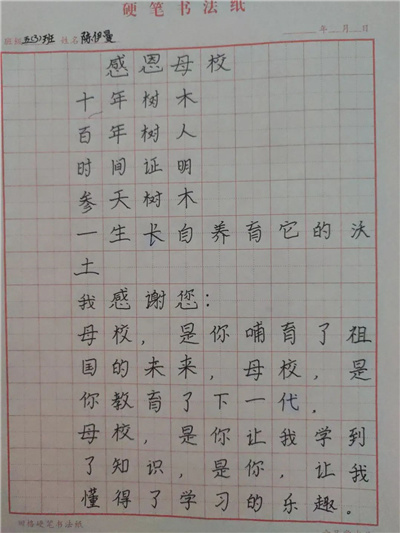 硬笔书法纸
班级 五(3)班 姓名 陈伊曼 年 月 日
感恩母校
十年树木
百年树人
时间证明
参天树木
一生长自养育它的沃
土
我感谢您:
母校,是你哺育了祖
国的未来,母校,是
你教育了下一代.
母校,是你让我学到
了知识,是你,让我
懂得了学习的乐趣。
田格硬笔书法纸